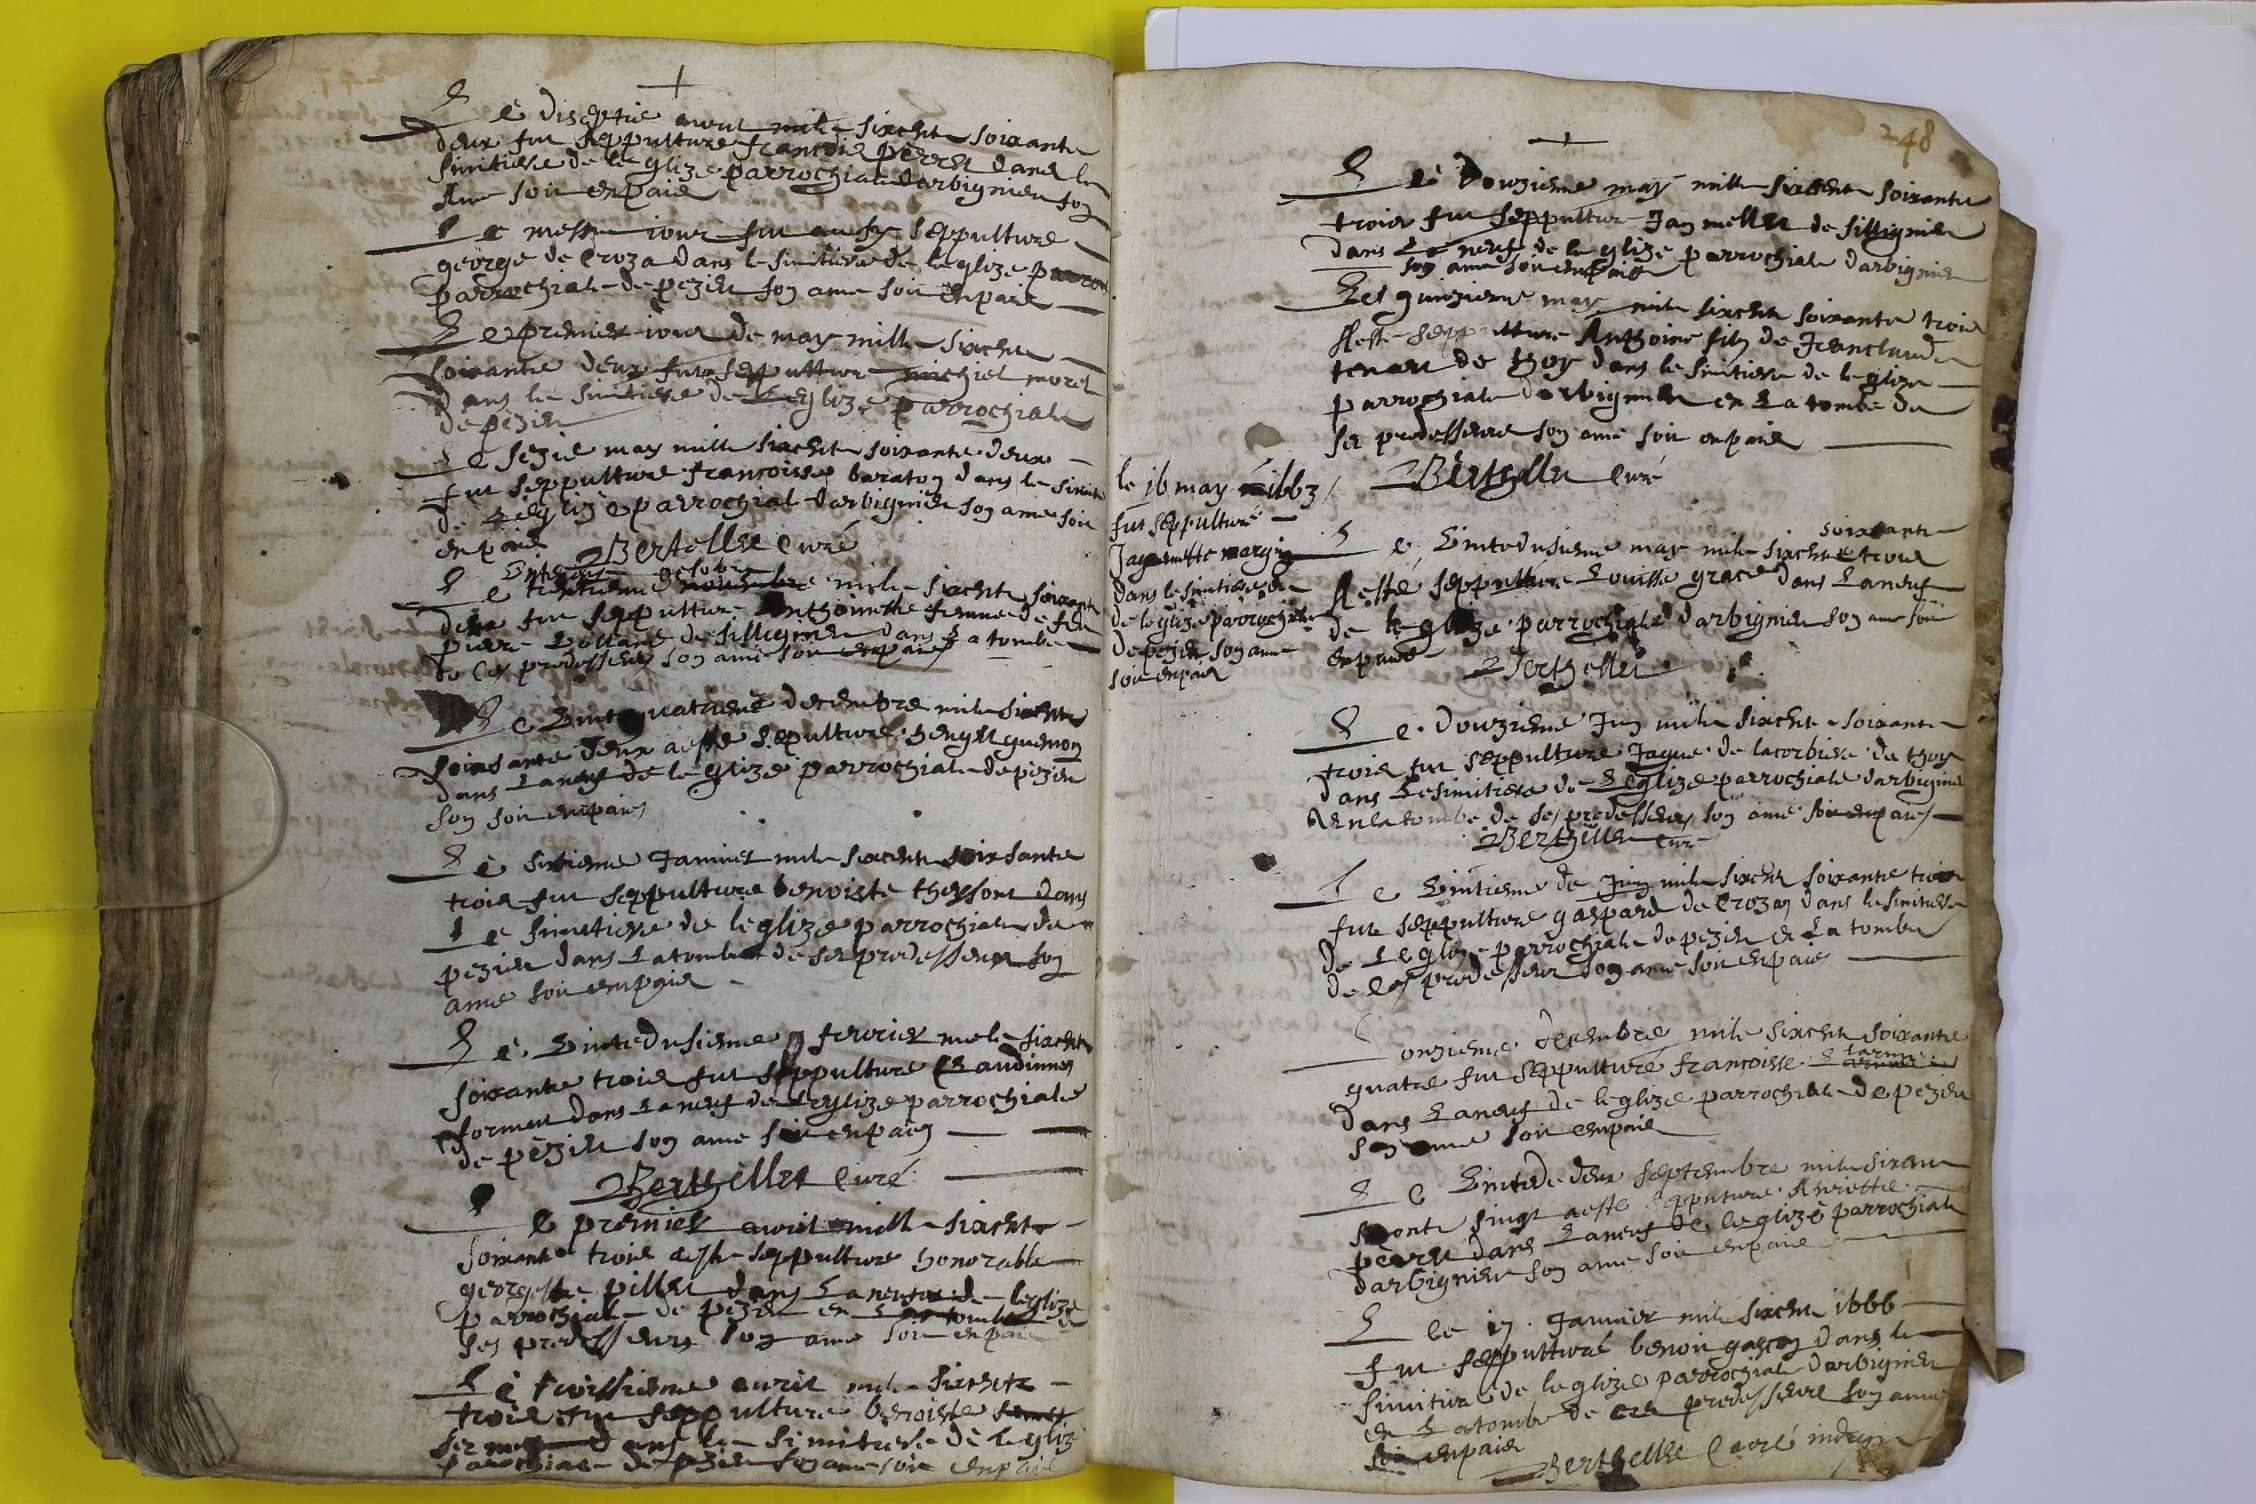 Le diseptie avril mile sixcent soixante
deux fut sepputture francois perret dans le
simitiere de leglize parrochiale darbignieu son
Ame soit enpaie
Le mesme iour fut ausy sepputture
george de Croza dans le simitiere de leglize parro
parrochiale de pezieu son ame soit enpaie
Le premier iour de may mille sixcent
soixante deux fut sepputture michiel morel
dans le simitiere de Leglize parrochiale
de pezieu
Le sezie may mille sixcent soixante deux
fut sepputture francoisse baraton dans le simitie
de Leglize parrochial darbignieu son ame soit
enpaie Berthellet Curé
octobre
Le mile sixcent soixante
deux fut sepputture Anthoinette femme de feu
pierre Lollard de sillignieu dans La tombe
de ces predesseurs son ame soit enpaie
Le Vintquatrieme decembre mile sixcent
soixsante deux aeste sepulturé
dans La neuf de leglize parrochiale de pezieu
son soit enpaie
Le sixtieme Janvier mile sixcent soixsante
troie fut seppulture benoiste theysont dans
Le simitiere de leglize parrochiale de
pezieu dans La tombe de ses predesseur son
ame soit enpaie
Le Vintedusieme fevrier mile sixcent
soixante troie fut sepputture Claudinne
formen dans La neuf de Leglize parrochiale
de pezieu son ame soit enpaie
Berthellet Curé
Le premier avril mille sixcent
soixante troie aeste seppulture honorable
georgette pillet dans La neuf de leglize
parrochiale de pezieu en La tombe de
ses predesseurs son ame soit enpaie
Le troissieme avril mile sixcent
troie fut seppulture benoiste
dans le simitiere de leglize
parochiale de pezieu son ame soit enpaie
le 16 may 1663
fut sepputturé
Jaquemette margin
dans le simitiere de
de leglize parrochiale
de pezieu son ame
soit enpaie
248
Le Douzieme may mille sixcent soixante
troies fut seppulture Jan mellet de sillignieu
dans La neuf de leglize parrochiale darbignieu
son ame soit enpaie
Les quinzieme may mile sixcent soixante troie
Aeste seppulture Anthoine filz de Jeanclaude
tenan de thoy dans le simitiere de leglize
parrochiale darbignieu en La tombe de
ses predesseure son ame soit enpaie
Berthellet Curé
soixante
Le Vintedusieme may mile sixcent troie
Aesté seppulture Louisse grace dans La neuf
de leglize parrochiale darbignieu son ame soit
enpaie
Berthellet
Le Douzieme Jun mile sixcent soixante
troie fut seppulture Jaque de lacorbiere de thoy
dans Le simitiere de Leglize parrochiale darbignieu
en la tombe de ses predesseurs son ame soit enpaie
Berthellet Curé
Le Vintieme de Jun mile sixcent soixante troie
fut seppulture gaspard de Crozan dans le simitiere
de Leglize parrochiale de pezieu en La tombe
de ces predesseur son ame soit enpaie
Lonzieme decembre mile sixcent soixante
quatre fut seppulturé francoisse
dans La neuf de leglize parrochiale de pezieu
son ame soit enpaie
Le Vintede deux septembre mile sixcent
soisonte singt aeste seppulture Anriette
perret dans La neuf de leglize parrochiale
darbignieu son ame soit enpaie
Le le 17 Janvier mile sixcent 1666
fut seppulturé benoit gascon dans le
simitiere de leglize parrochiale darbignieu
en La tombe de ces predesseure son ame
soit enpaie
Berthellet Curé indigne